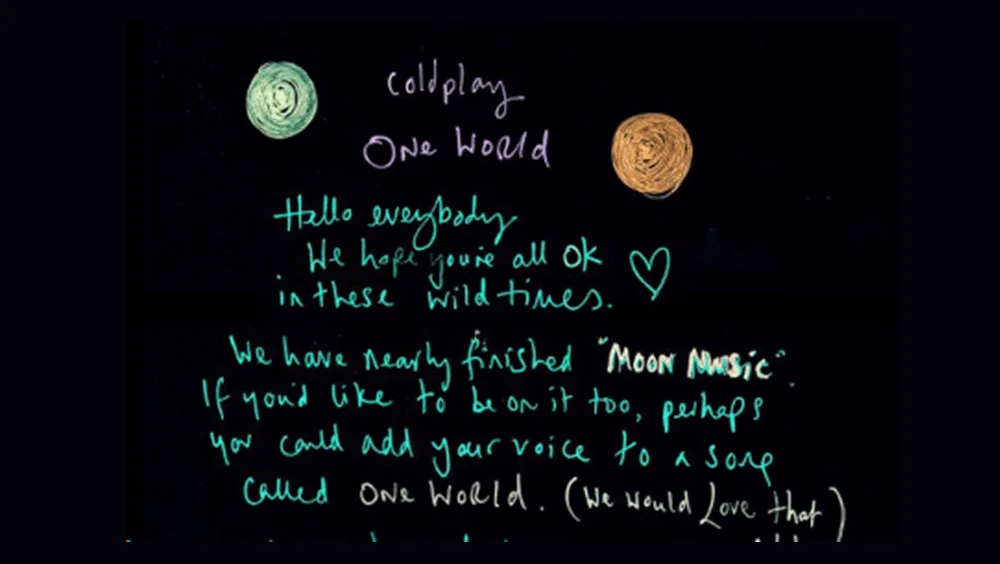 coldplay
ONE WORLD
Hello everybody
We hope you're all OK
in these wild times.
We have nearly finished "MOON MUSiC".
If you'd like to be on it too, perhaps
you could add your voice to a song
called ONE WORLD. (We would Love that)